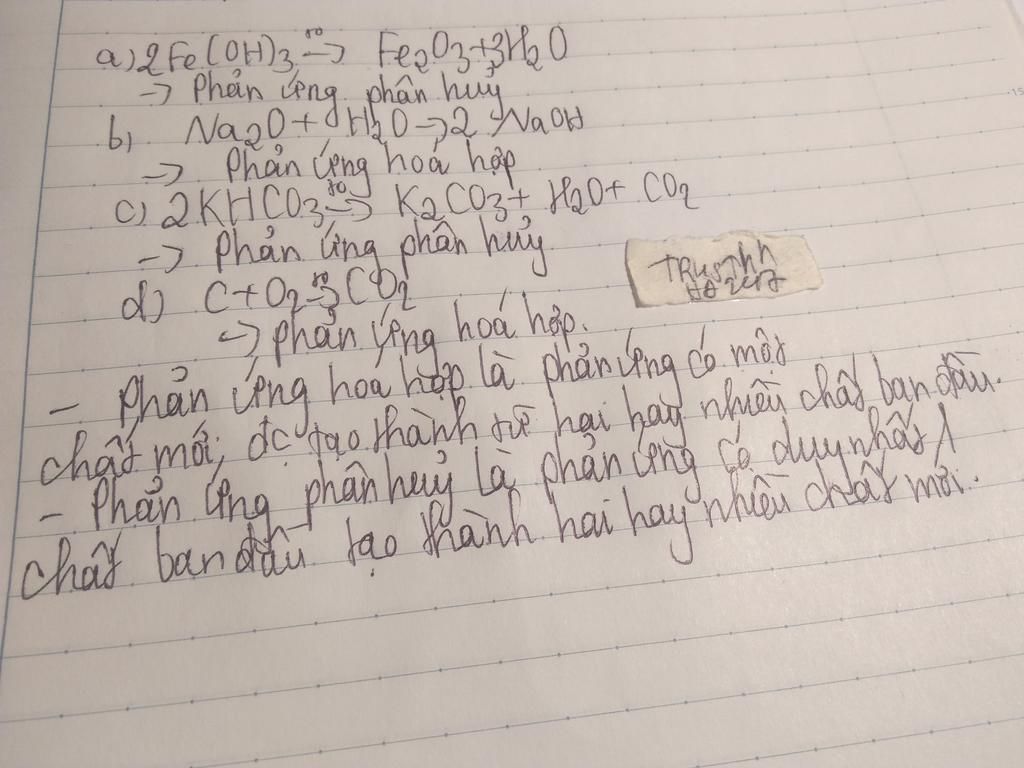 a) 2Fe(OH)3 t°→ Fe2O3+3H2O
→ Phản ứng phân huỷ
b) Na2O + H2O → 2 NaOH
→ Phản ứng hoá hợp
c) 2KHCO3 t°→ K2CO3 + H2O + CO2
→ Phản ứng phân hủy
d) C + O2 t°→ CO2
→ phản ứng hoá hợp.
- Phản ứng hoá hợp là phản ứng có một
chất mới, đc tạo thành từ hai hay nhiều chất ban đầu.
- Phản ứng phân huỷ là phản ứng có duy nhất 1
chất ban đầu tạo thành hai hay nhiều chất mới.